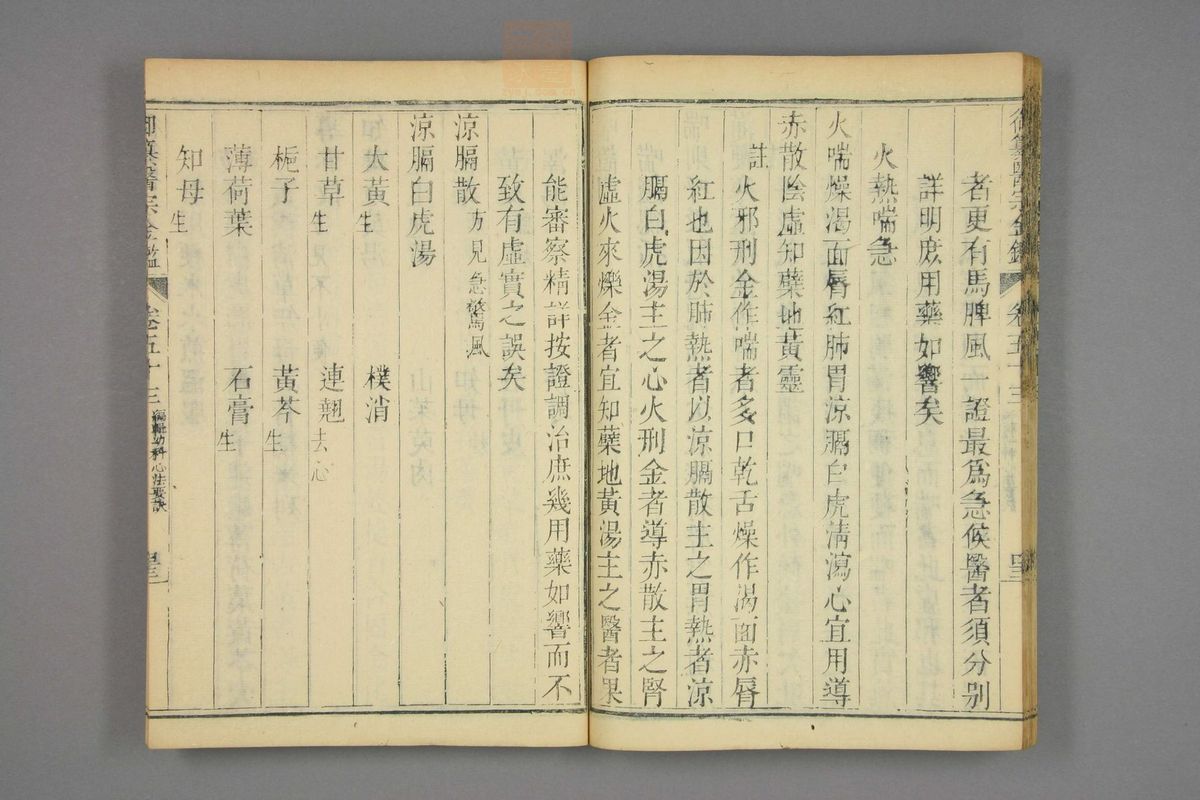 御纂醫宗金鑑 卷五十三
者更有馬脾風一證最爲急候醫者須分別
詳明庶用藥如響矣
火熱喘急
火喘燥渴面脣紅肺胃涼膈白虎清瀉心宜用導
赤散陰虛知蘗地黃靈
註火邪刑金作喘者多口乾舌燥作渴面赤脣
紅也因於肺熱者以涼膈散主之胃熱者涼
膈白虎湯主之心火刑金者導赤散主之腎
虛火來爍金者宜知蘗地黃湯主之醫者果
能審察精詳按證調治庶幾用藥如響而不
致有虛實之誤矣
涼膈散方見急驚風
涼膈白虎湯
大黃生 樸消
甘草生 連翹去心
梔子 黃芩生
薄荷葉 石膏生
知母生
御纂醫宗金鑑 卷五十三 編輯幼科心法要訣